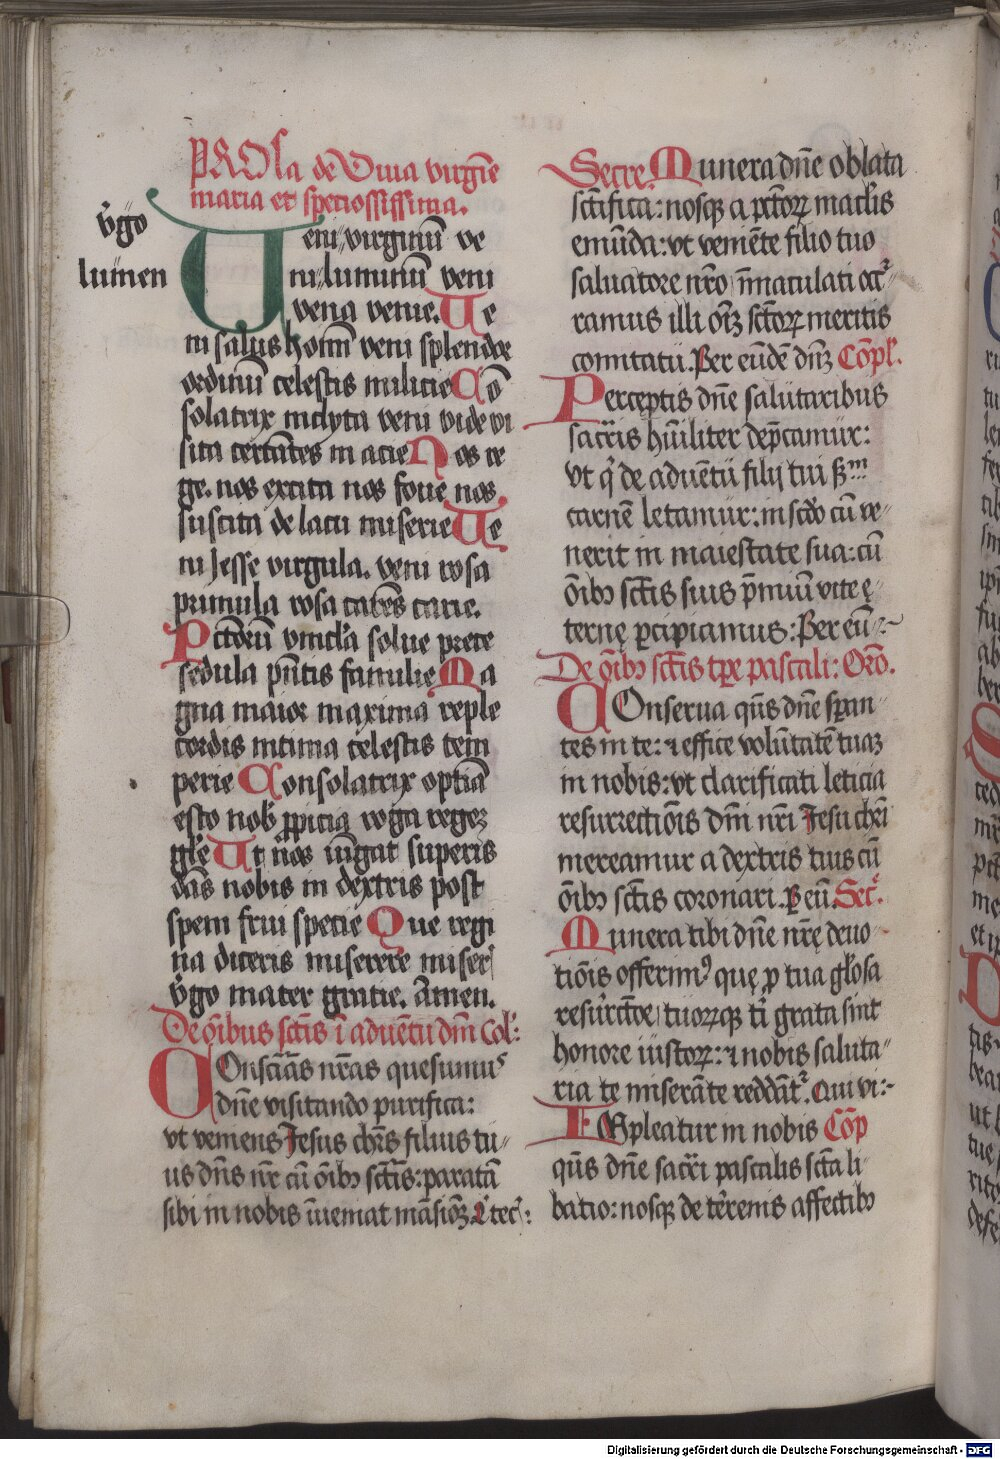 PROSa de Diua virgīe
maria et speciosissima.
v̄go
lumen
Ueni virginū ve
ni luminū veni
vena venie. Ue
ni salus hoīm veni splendor
ordinū celestis milicie Cō
solatrix inclyta veni vide vi
sita certātes in acie Nos re
ge. nos excita nos foue nos
suscita de lacu miserie Ue
ni Jesse virgula. veni rosa
primula rosa carēs carie.
Pctōrū vincl'a solue prece
sedula pn̄tis familie Ma
gna maior maxima reple
cordis intima celestis tem
perie Consolatrix optīa
esto nob̄ ꝓpicia roga regeꝫ
gl'e Ut n̄os iūgat superis
dās nobis in dextris post
spem frui specie Que regi
na diceris miserere miseri
v̄go mater gratie. Amen.
De oībus sctīs ī aduētu dnī Col':
COnsciās nr̄as quesumus
dn̄e visitando purifica:
vt veniens Jesus chrs̄ filius tu-
us dn̄s nr̄ cū oībꝫ sctīs: paratā
sibi in nobis īueniat māsionꝫ. Q' tec̄:
Secre. Munera dn̄e oblata
sctīfica: nosqꝫ a pctōꝝ maclīs
emūda: vt veniēte filio tuo
saluatore nr̄o īmaculati occ'-
ramus illi oīꝫ sctōꝝ meritis
comitatū. Per eūdē dn̄ꝫ Cōpl'.
Perceptis dn̄e salutaribus
sacr̄is hūiliter dep̄camur:
vt q' de aduētū filij tui ẜm
carnē letamur: in scd̄o cū ve-
nerit in maiestate sua: cū
oībꝫ sctīs suis p̄miū vite ę-
ternę ꝑcipiamus: Per eū:
De oībꝫ sctīs tꝑe pascali: Orō.
COnserua qūs dn̄e sꝑan
tes in te: ⁊ effice volūtatē tuaꝫ
in nobis: vt clarificati leticia
resurrectiōis dnī nr̄i Jesu chr̄i
mereamur a dextris tuis cū
oībꝫ sctīs coronari. ꝑ eū. Sec̄.
Munera tibi dn̄e nr̄ę deuo-
tiōis offerim⁹ quę ꝓ tua gl'osa
resurr̄ctōe tuorꝝqꝫ tī grata sint
honore iustoꝝ: ⁊ nobis saluta-
ria te miserāte reddāt'. Qui vi:-
IMpleatur in nobis Cōp
qūs dn̄e sacr̄i pascalis scta li
batio: nosqꝫ de tērenis affectibꝫ
Digitalisierung gefördert durch die Deutsche Forschungsgemeinschaft - DFG